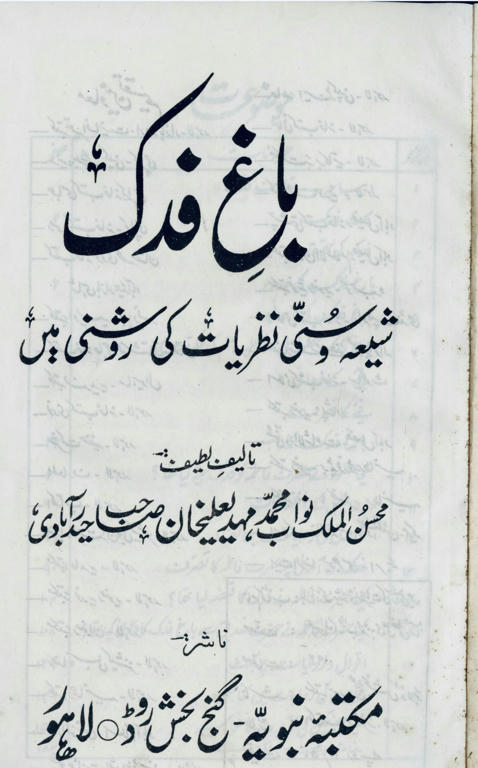 باغِ فدک
شیعہ و سُنّی نظریات کی روشنی میں
تالیفِ لطیف:
محسن الملک نواب محمد مہدیعلیخان صاحب حیدرآبادی
ناشر:
مکتبۂ نبویّہ - گنج بخش روڈ ○ لاہور